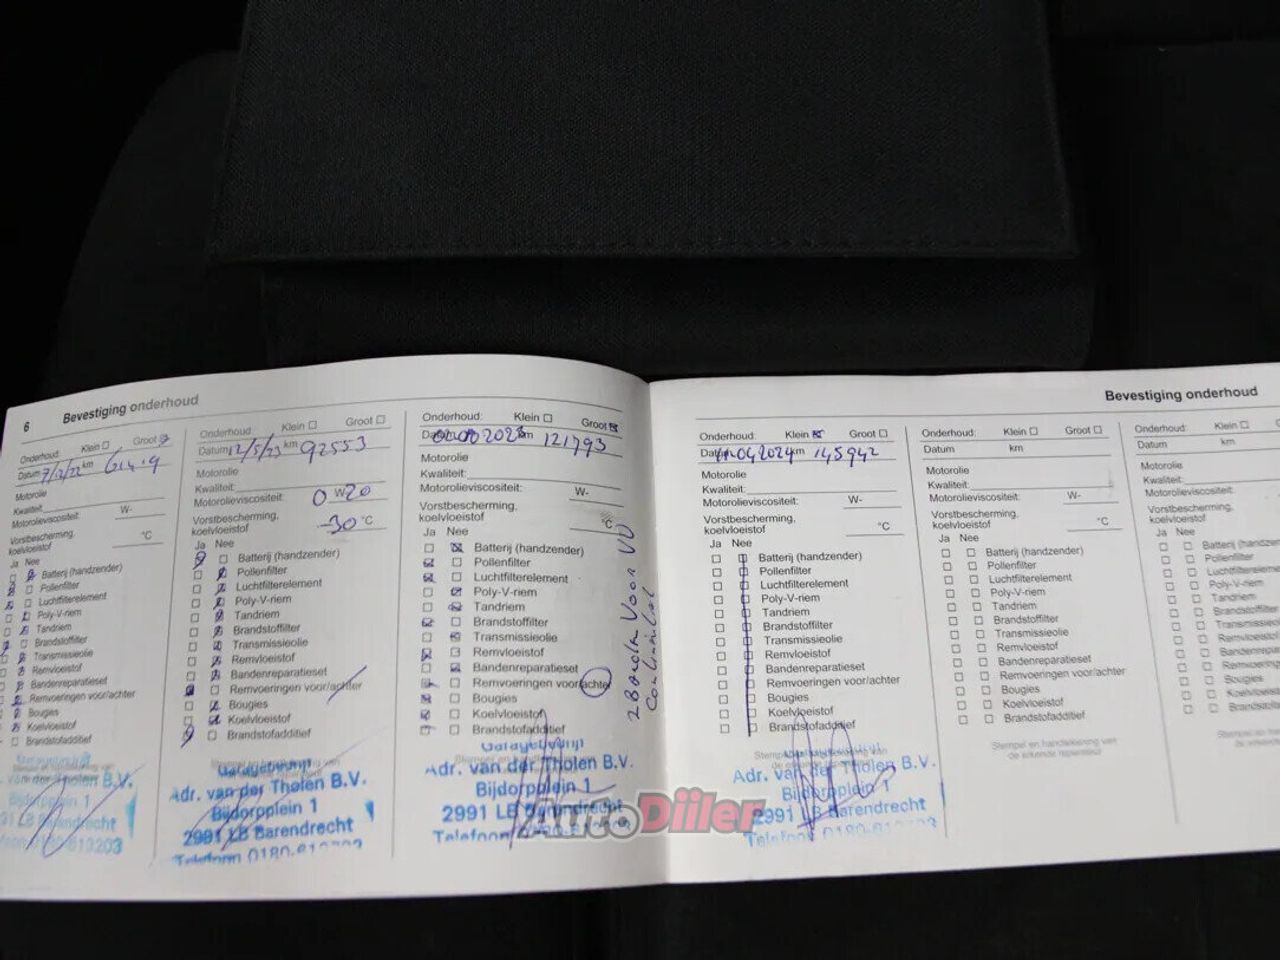 6 Bevestiging onderhoud
Klein Groot
Datum 7/12/22 km
Motorolie
Kwaliteit:
Motorolieviscositeit: W-
Vorstbescherming,
koelvloeistof °C
Ja Nee
Batterij (handzender)
Pollenfilter
Luchtfilterelement
Poly-V-riem
Tandriem
Brandstoffilter
Transmissieolie
Remvloeistof
Bandenreparatieset
Remvoeringen voor/achter
Bougies
Koelvloeistof
Brandstofadditief
Adr. van der Tholen B.V.
Bijdorpplein 1
Barendrecht
0180-613203
Onderhoud: Klein Groot
Datum 12/5/23 km 92553
Motorolie
Kwaliteit:
Motorolieviscositeit: 0 W-20
Vorstbescherming,
koelvloeistof -30 °C
Ja Nee
Batterij (handzender)
Pollenfilter
Luchtfilterelement
Poly-V-riem
Tandriem
Brandstoffilter
Transmissieolie
Remvloeistof
Bandenreparatieset
Remvoeringen voor/achter
Bougies
Koelvloeistof
Brandstofadditief
Garagebedrijf
Adr. van der Tholen B.V.
Bijdorpplein 1
2991 LB Barendrecht
Telefoon 0180-613203
Onderhoud: Klein Groot
Datum 2023 km 121793
Motorolie
Kwaliteit:
Motorolieviscositeit: W-
Vorstbescherming,
koelvloeistof °C
Ja Nee
Batterij (handzender)
Pollenfilter
Luchtfilterelement
Poly-V-riem
Tandriem
Brandstoffilter
Transmissieolie
Remvloeistof
Bandenreparatieset
Remvoeringen voor/achter
Bougies
Koelvloeistof
Brandstofadditief
2 Banden Voor VD
Continental
Garagebedrijf
Adr. van der Tholen B.V.
Bijdorpplein 1
2991 LB Barendrecht
Telefoon
Bevestiging onderhoud
Onderhoud: Klein Groot
Datum 11.04.2024 km 145942
Motorolie
Kwaliteit:
Motorolieviscositeit: W-
Vorstbescherming,
koelvloeistof °C
Ja Nee
Batterij (handzender)
Pollenfilter
Luchtfilterelement
Poly-V-riem
Tandriem
Brandstoffilter
Transmissieolie
Remvloeistof
Bandenreparatieset
Remvoeringen voor/achter
Bougies
Koelvloeistof
Brandstofadditief
Adr. van der Tholen B.V.
Bijdorpplein 1
2991 LB Barendrecht
Telefoon 0180-613203
Onderhoud: Klein Groot
Datum km
Motorolie
Kwaliteit:
Motorolieviscositeit: W-
Vorstbescherming,
koelvloeistof °C
Ja Nee
Batterij (handzender)
Pollenfilter
Luchtfilterelement
Poly-V-riem
Tandriem
Brandstoffilter
Transmissieolie
Remvloeistof
Bandenreparatieset
Remvoeringen voor/achter
Bougies
Koelvloeistof
Brandstofadditief
Stempel en handtekening van
de erkende reparateur
Onderhoud: Klein
Datum km
Motorolie
Kwaliteit:
Motorolieviscositeit:
Vorstbescherming,
koelvloeistof
Ja Nee
Batterij (handzender)
Pollenfilter
Luchtfilterelement
Poly-V-riem
Tandriem
Brandstoffilter
Transmissieolie
Remvloeistof
Bandenreparatieset
Remvoeringen
Bougies
Koelvloeistof
AutoDiiler